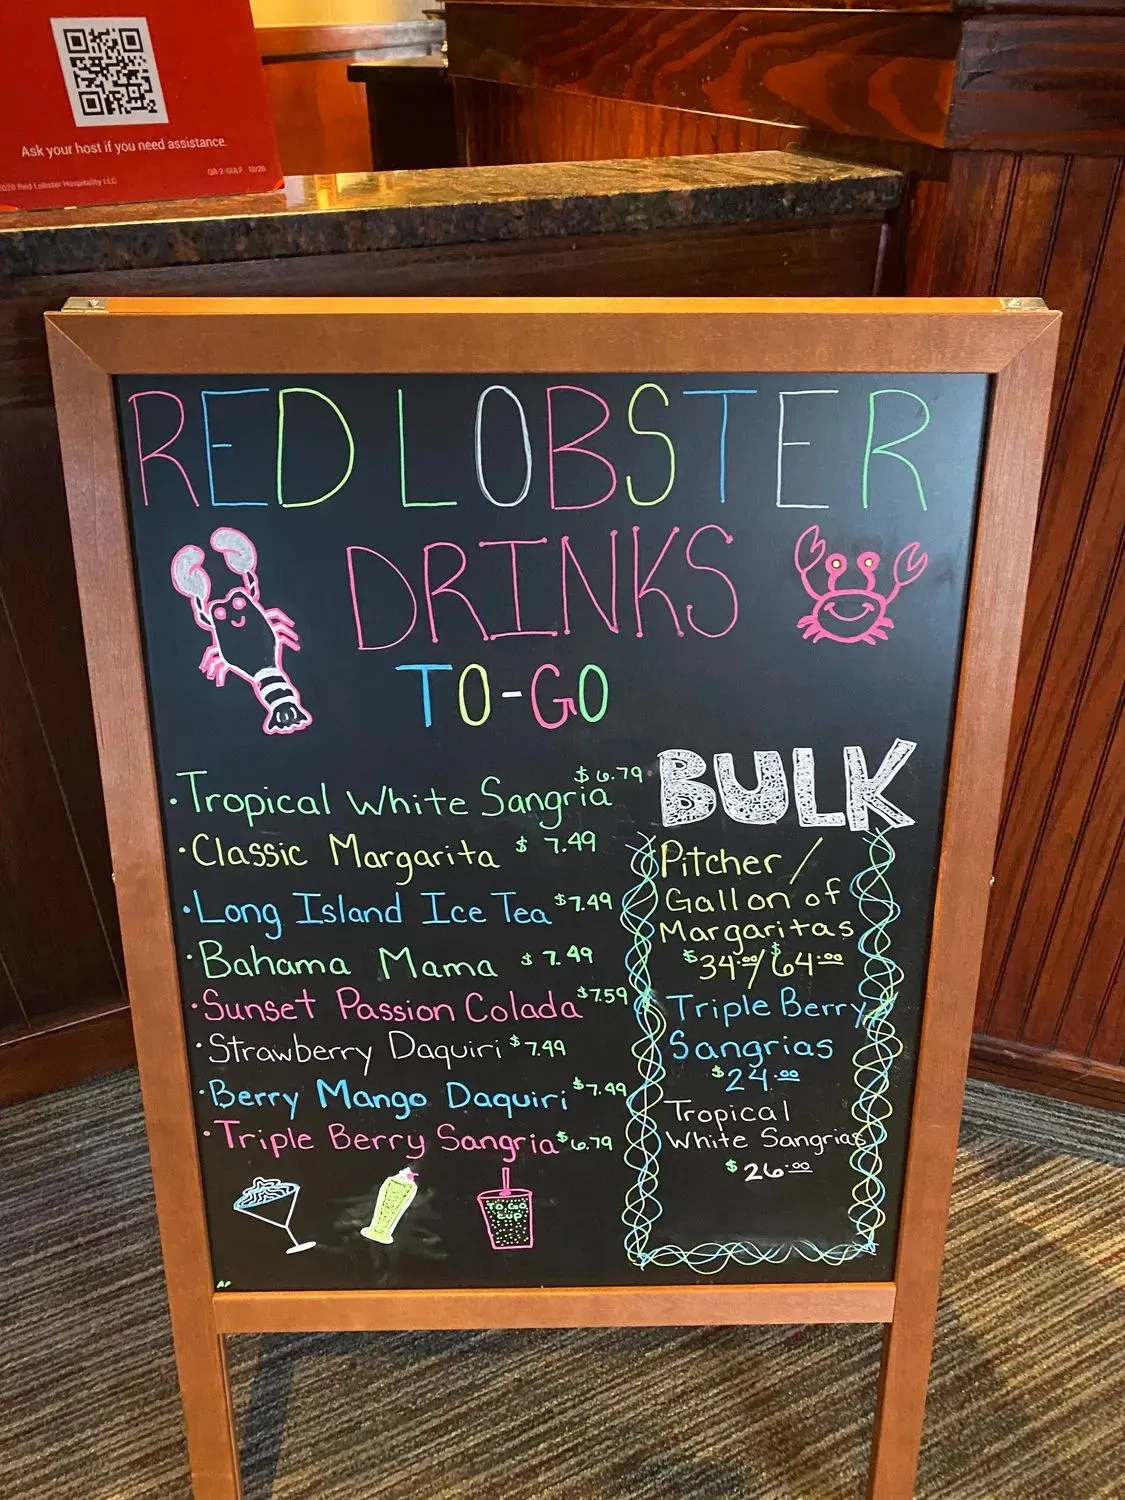 Ask your host if you need assistance.
2020 Red Lobster Hospitality LLC
QR-2-GULF 10/20
RED LOBSTER
DRINKS
TO-GO
· Tropical White Sangria $6.79
· Classic Margarita $7.49
· Long Island Ice Tea $7.49
· Bahama Mama $7.49
· Sunset Passion Colada $7.59
· Strawberry Daquiri $7.49
· Berry Mango Daquiri $7.49
· Triple Berry Sangria $6.79
BULK
Pitcher /
Gallon of
Margaritas
$34.00/$64.00
Triple Berry
Sangrias
$24.00
Tropical
White Sangrias
$26.00
TO GO
CUP
AP